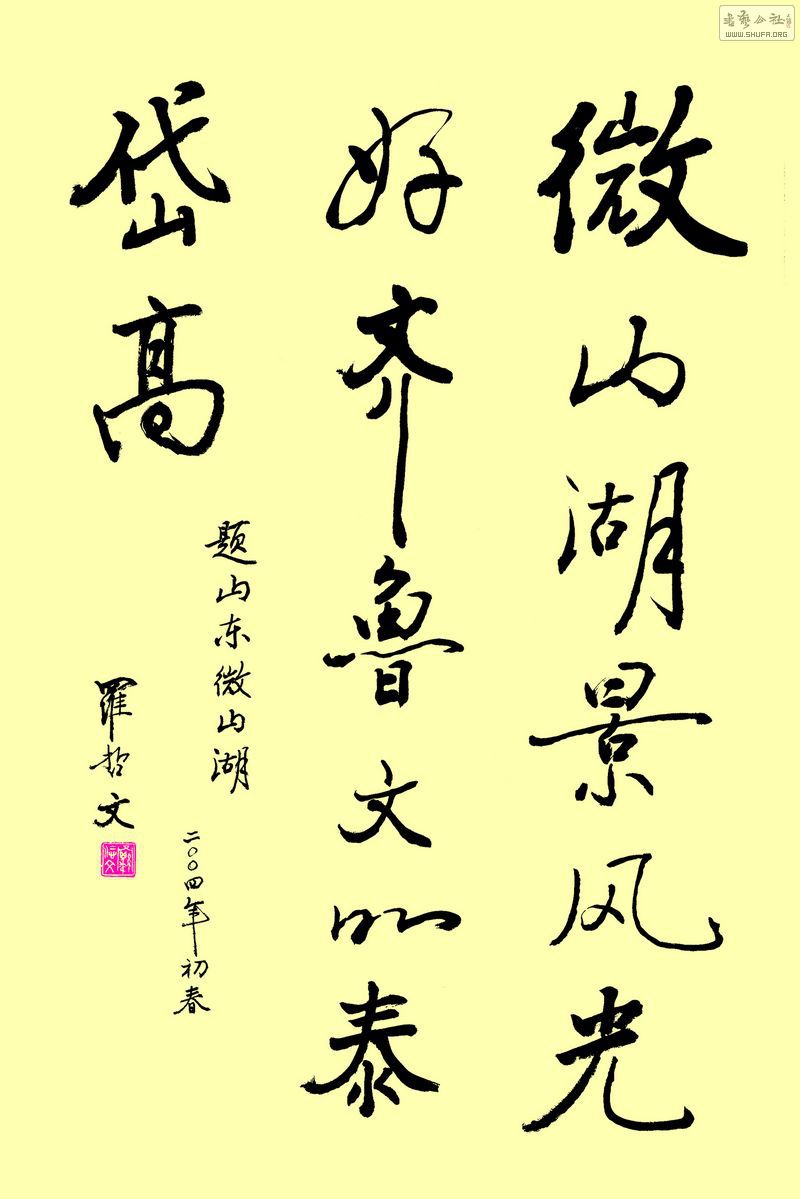 微山湖景风光
好齐鲁文泰
岱高
题山东微山湖
二〇〇四年初春
羅哲文
書藝公社
WWW.SHUFA.ORG